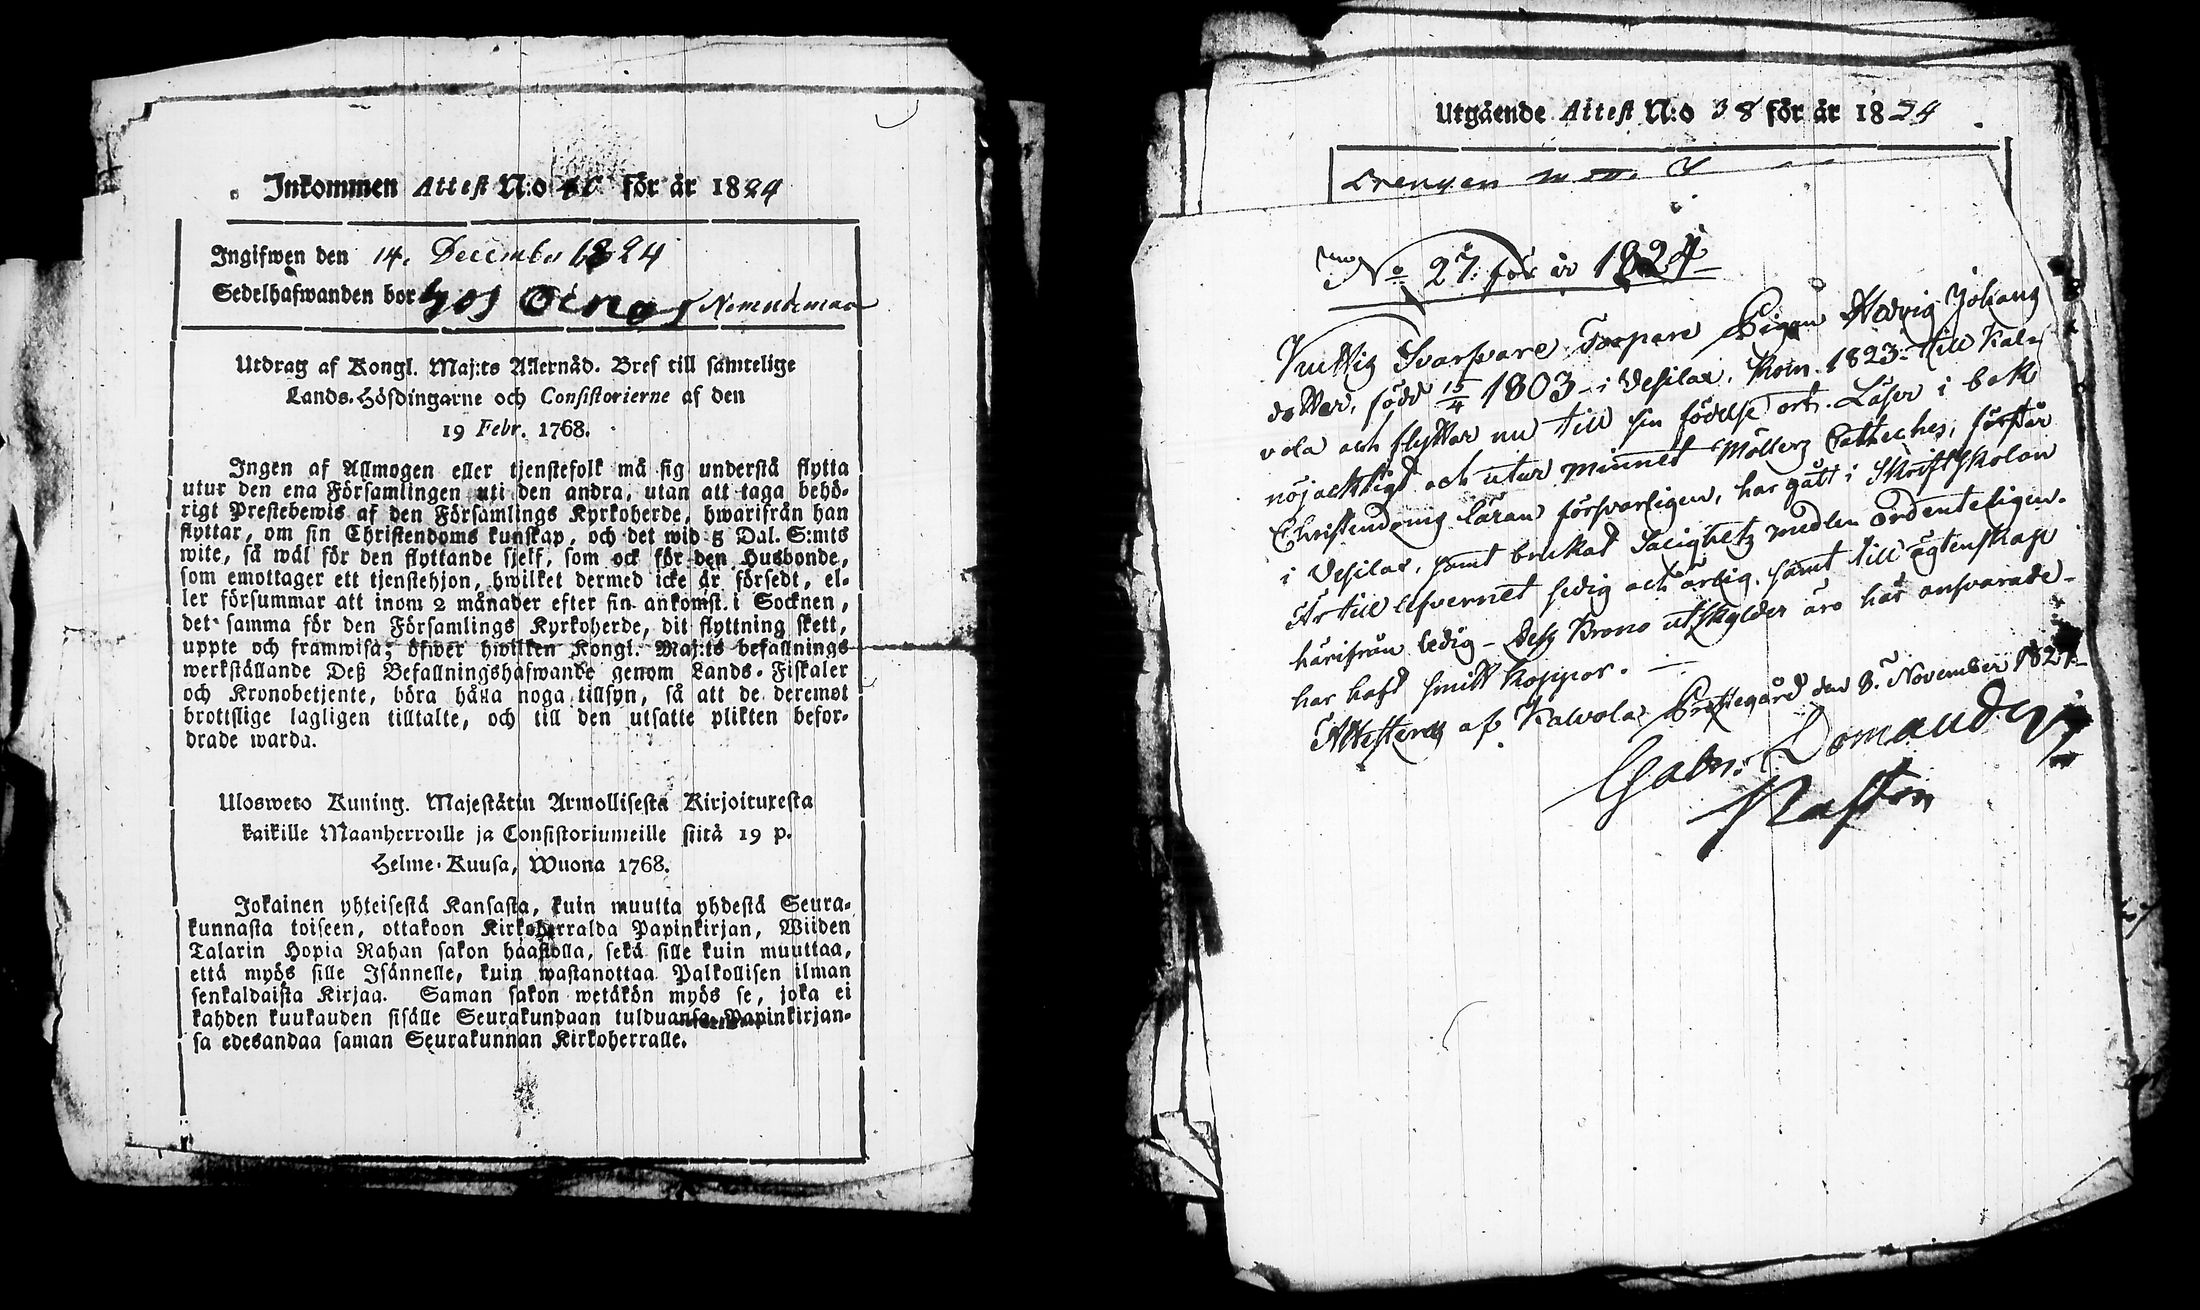 Inkommen Attest N:o för år 1824
Ingifwen den 14. December 1824
Sedelhafwanden bor hos Oinas
Utdrag af Kongl. Maj:ts Allernåd. Bref till samtelige
Lands-Höfdingarne och Consistorierne af den
19 Febr. 1768.
Ingen af Allmogen eller tjenstefolk må sig understå flytta
utur den ena Församlingen uti den andra, utan att taga behö-
rigt Prestebewis af den Församlings Kyrkoherde, hwarifrån han
flyttar, om sin Christendoms kunskap, och det wid 5 Dal. S:mts
wite, så wäl för den flyttande sjelf, som ock för den Husbonde,
som emottager ett tjenstehjon, hwilket dermed icke är försedt, el-
ler försummar att inom 2 månader efter sin ankomst i Socknen,
det samma för den Församlings Kyrkoherde, dit flyttning skett,
uppte och framwisa; öfwer hwilken Kongl. Maj:ts befallnings
werkställande Deß Befallningshafwande genom Lands-Fiskaler
och Kronobetjente, böra hålla noga tillsyn, så att de deremot
brottslige lagligen tilltalte, och till den utsatte plikten befor-
drade warda.
Ulosweto Kuning. Majestätin Armollisesta Kirjoituxesta
kaikille Maanherroille ja Consistoriumeille siitä 19 p.
Helme-Kuusa, Wuona 1768.
Jokainen yhteisestä Kansasta, kuin muutta yhdestä Seura-
kunnasta toiseen, ottakoon Kirkoherralda Papinkirjan, Wiiden
Talarin Hopia Rahan sakon haastolla, sekä sille kuin muuttaa,
että myös sille Isännelle, kuin wastanottaa Palkollisen ilman
senkaldaista Kirjaa. Saman sakon wetäkön myös se, joka ei
kahden kuukauden sisälle Seurakundaan tulduansa Papinkirjan-
sa edesandaa saman Seurakunnan Kirkoherralle.
Utgående Attest N:o 38 för år 1824
Drengen
No 27 för år 1824
Torpare Pigan Hedvig Johans
dotter, född 15/4 1803 i Vesilax, kom 1823 till Kal-
vola och flyttar nu till sin födelse ort. Läser i bok
nöjacktigt och utur minnet Möllers Catheches, förstår
Christendoms läran försvarligen, har gått i Skriftskolan
i Vesilax, samt brukat Salighets medlen ordenteligen.
Är till lefvernet sedig och ärlig, samt till ägtenskap
härifrån ledig - Dess Krono utskylder äro här ansvarade -
har haft smitt koppor.
Attesteras af Kalvola Prestegård den 3. November 1824
Gabr. Domander
Pastor